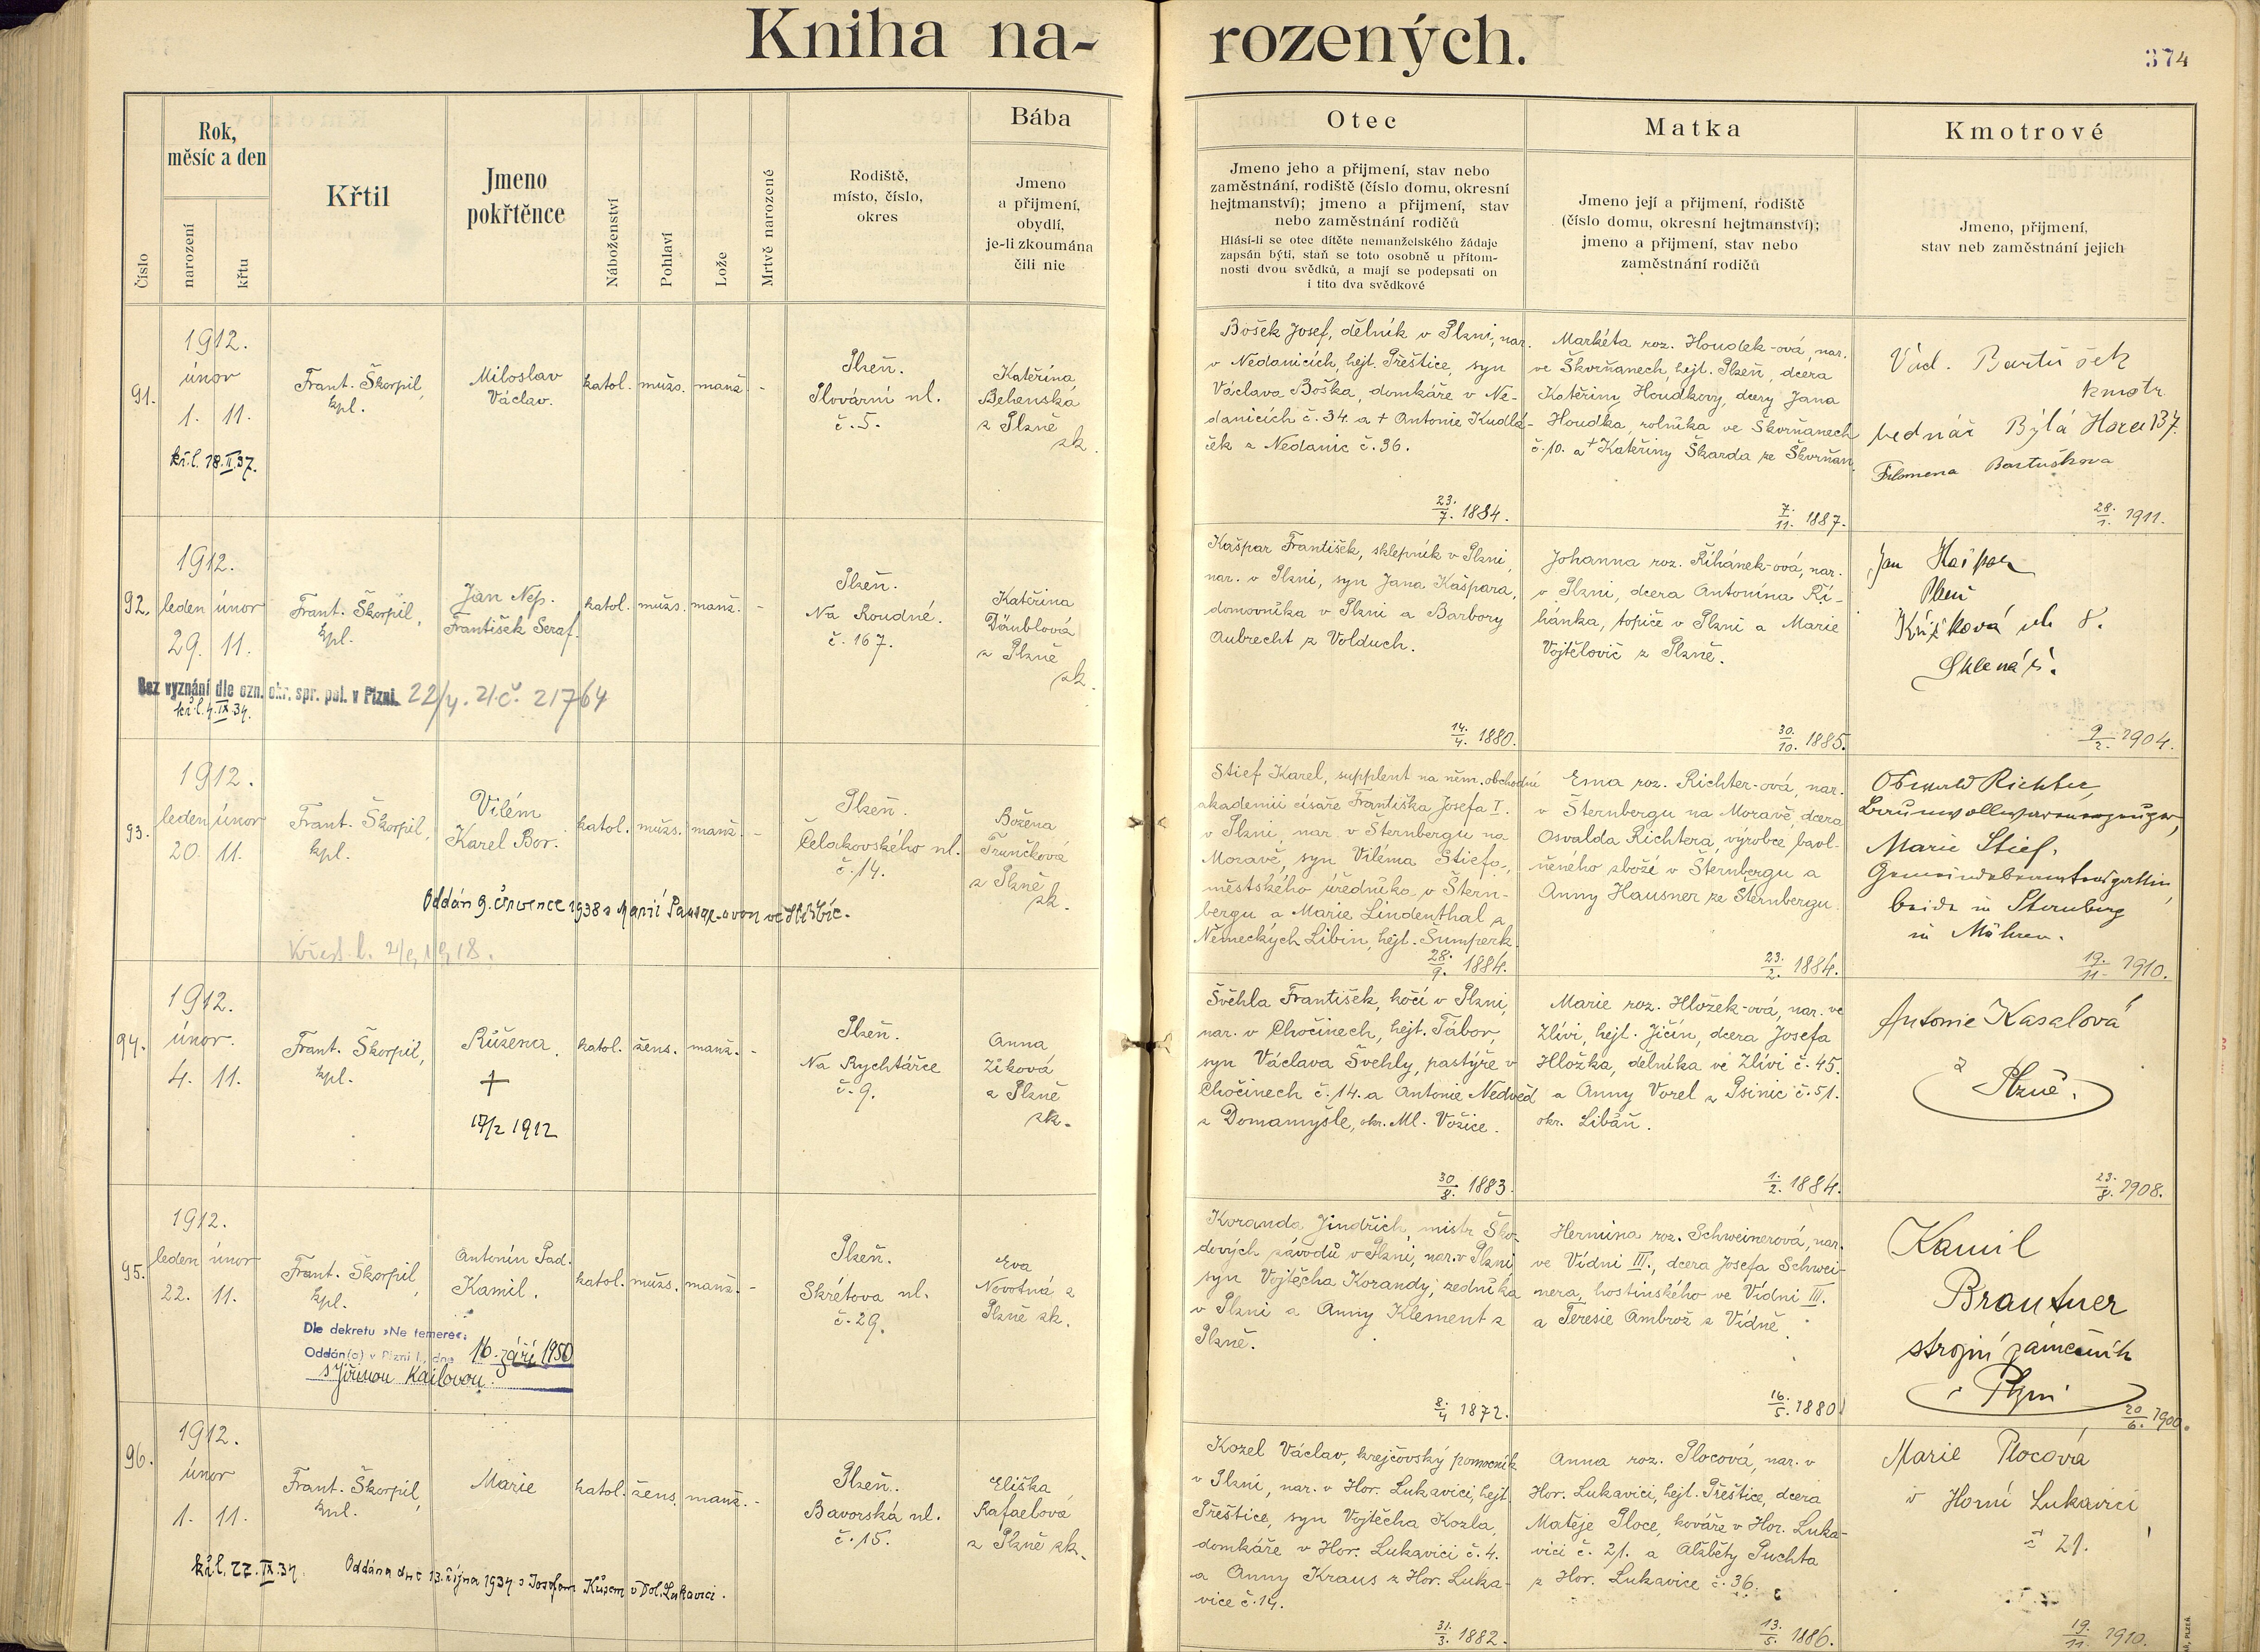 Kniha na-
rozených.
374
Číslo
Rok,
měsíc a den
narození
křtu
Křtil
Jmeno
pokřtěnce
Náboženství
Pohlaví
Lože
Mrtvě narozené
Rodiště,
místo, číslo,
okres
Bába
Jmeno
a přijmení,
obydlí,
je-li zkoumána
čili nic
Otec
Jmeno jeho a přijmení, stav nebo
zaměstnání, rodiště (číslo domu, okresní
hejtmanství); jmeno a přijmení, stav
nebo zaměstnání rodičů
Hlásí-li se otec dítěte nemanželského žádaje
zapsán býti, staň se toto osobně u přítom-
nosti dvou svědků, a mají se podepsati on
i tito dva svědkové
Matka
Jmeno její a přijmení, rodiště
(číslo domu, okresní hejtmanství);
jmeno a přijmení, stav nebo
zaměstnání rodičů
Kmotrové
Jmeno, přijmení,
stav neb zaměstnání jejich
91.
1912.
únor
1. 11.
kř.l. 18.II.37.
Frant. Škorpil,
kpl.
Miloslav
Václav.
katol. mužs. manž. -
Plzeň.
Plovární ul.
č. 5.
Kateřina
Behenska
z Plzně
zk.
Bošek Josef, dělník v Plzni, nar.
v Nedanicích, hejt. Přeštice, syn
Václava Boška, domkáře v Ne-
danicích č. 34. a + Antonie Kudlá-
ček z Nedanic č. 36.
23./7. 1884.
Markéta roz. Houdek-ová, nar.
ve Škvrňanech, hejt. Plzeň, dcera
Kateřiny Houdkovy, dcery Jana
Houdka, rolníka ve Škvrňanech
č. 10. a + Kateřiny Škarda ze Škvrňan.
7./11. 1887.
Václ. Bartůšek
kmotr
bednář Bílá Hora 137.
Filomena Bartůškova
28./1. 1911.
92.
1912.
leden únor
29. 11.
Bez vyznání dle ozn. okr. spr. pol. v Plzni. 22/4. 21 č. 21764
kř.l. 4.IX.34.
Frant. Škorpil,
kpl.
Jan Nep.
František Seraf.
katol. mužs. manž. -
Plzeň.
Na Roudné.
č. 167.
Kateřina
Däublová
z Plzně
zk.
Kašpar František, sklepník v Plzni,
nar. v Plzni, syn Jana Kašpara,
domovníka v Plzni a Barbory
Aubrecht z Volduch.
14./4. 1880.
Johanna roz. Řihánek-ová, nar.
v Plzni, dcera Antonína Ři-
hánka, topiče v Plzni a Marie
Vojtělovič z Plzně.
30./10. 1885.
Jan Kašpar
Plzeň
Křížková ul. 8.
Sklenář.
9/2. 1904.
93.
1912.
leden únor
20. 11.
Frant. Škorpil,
kpl.
Vilém
Karel Bor.
Oddán 9. července 1938 s Marií
Křest. l. 2/9 1918.
katol. mužs. manž. -
Plzeň.
Čelakovského ul.
č. 14.
Božena
Trunčková
z Plzně
zk.
Stief Karel, supplent na něm. obchodní
akademii císaře Františka Josefa I.
v Plzni, nar. v Šternbergu na
Moravě, syn Viléma Stiefa,
městského úředníka v Štern-
bergu a Marie Lindenthal z
Německých Libin, hejt. Šumperk.
28./9. 1884.
Ema roz. Richter-ová, nar.
v Šternbergu na Moravě, dcera
Osvalda Richtera, výrobce bavl-
něného zboží v Šternbergu a
Anny Hausner ze Šternbergu.
23./2. 1884.
Oswald Richter,
Baumwollwarenerzeuger,
Marie Stief,
Gemeindebeamtensgattin,
beide in Sternberg
in Mähren.
19./11. 1910.
94.
1912.
únor.
4. 11.
Frant. Škorpil,
kpl.
Růžena.
+
17/2 1912
katol. žens. manž. -
Plzeň.
Na Rychtářce
č. 9.
Anna
Zíková
z Plzně
zk.
Švehla František, kočí v Plzni,
nar. v Chočinech, hejt. Tábor,
syn Václava Švehly, pastýře v
Chočinech č. 14. a Antonie Nedvěd
z Domamyšle, okr. Ml. Vožice.
30./8. 1883.
Marie roz. Hložek-ová, nar. ve
Zlivi, hejt. Jičín, dcera Josefa
Hložka, dělníka ve Zlivi č. 45.
a Anny Vorel z Psinic č. 51.
okr. Libáň.
1./2. 1884.
Antonie Kasalová
z
Plzně.
23./8. 1908.
95.
1912.
leden únor
22. 11.
Frant. Škorpil,
kpl.
Antonín Pad.
Kamil.
Dle dekretu »Ne temere«:
Oddán(a) v Plzni I., dne 16. září 1950
s Jiřinou Kailovou.
katol. mužs. manž. -
Plzeň.
Skrétova ul.
č. 29.
Eva
Novotná z
Plzně zk.
Koranda Jindřich, mistr Ško-
dových závodů v Plzni, nar. v Plzni
syn Vojtěcha Korandy, zedníka
v Plzni a Anny Klement z
Plzně.
8./4 1872.
Hermina roz. Schweinerová, nar.
ve Vídni III., dcera Josefa Schwei-
nera, hostinského ve Vídni III.
a Teresie Ambrož z Vídně.
16./5. 1880.
Kamil
Brautner
strojní zámečník
v Plzni
20/6. 1900.
96.
1912.
únor
1. 11.
kř.l. 22.IX.34.
Oddána dne 13. října 1934 s Josefem Kůsem v Dol. Lukavici.
Frant. Škorpil,
kpl.
Marie
katol. žens. manž. -
Plzeň.
Bavorská ul.
č. 15.
Eliška
Rafaelová
z Plzně zk.
Kozel Václav, krejčovský pomocník
v Plzni, nar. v Hor. Lukavici, hejt.
Přeštice, syn Vojtěcha Kozla,
domkáře v Hor. Lukavici č. 4.
a Anny Kraus z Hor. Luka-
vice č. 14.
31./3. 1882.
Anna roz. Plocová, nar. v
Hor. Lukavici, hejt. Přeštice, dcera
Matěje Ploce, kováře v Hor. Luka-
vici č. 21. a Alžběty Puchta
z Hor. Lukavice č. 36.
13./5. 1886.
Marie Plocová
v Horní Lukavici
č 21.
19./11. 1910.